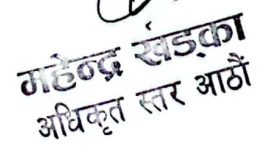 महेन्द्र खड्का
अधिकृत स्तर आठौं